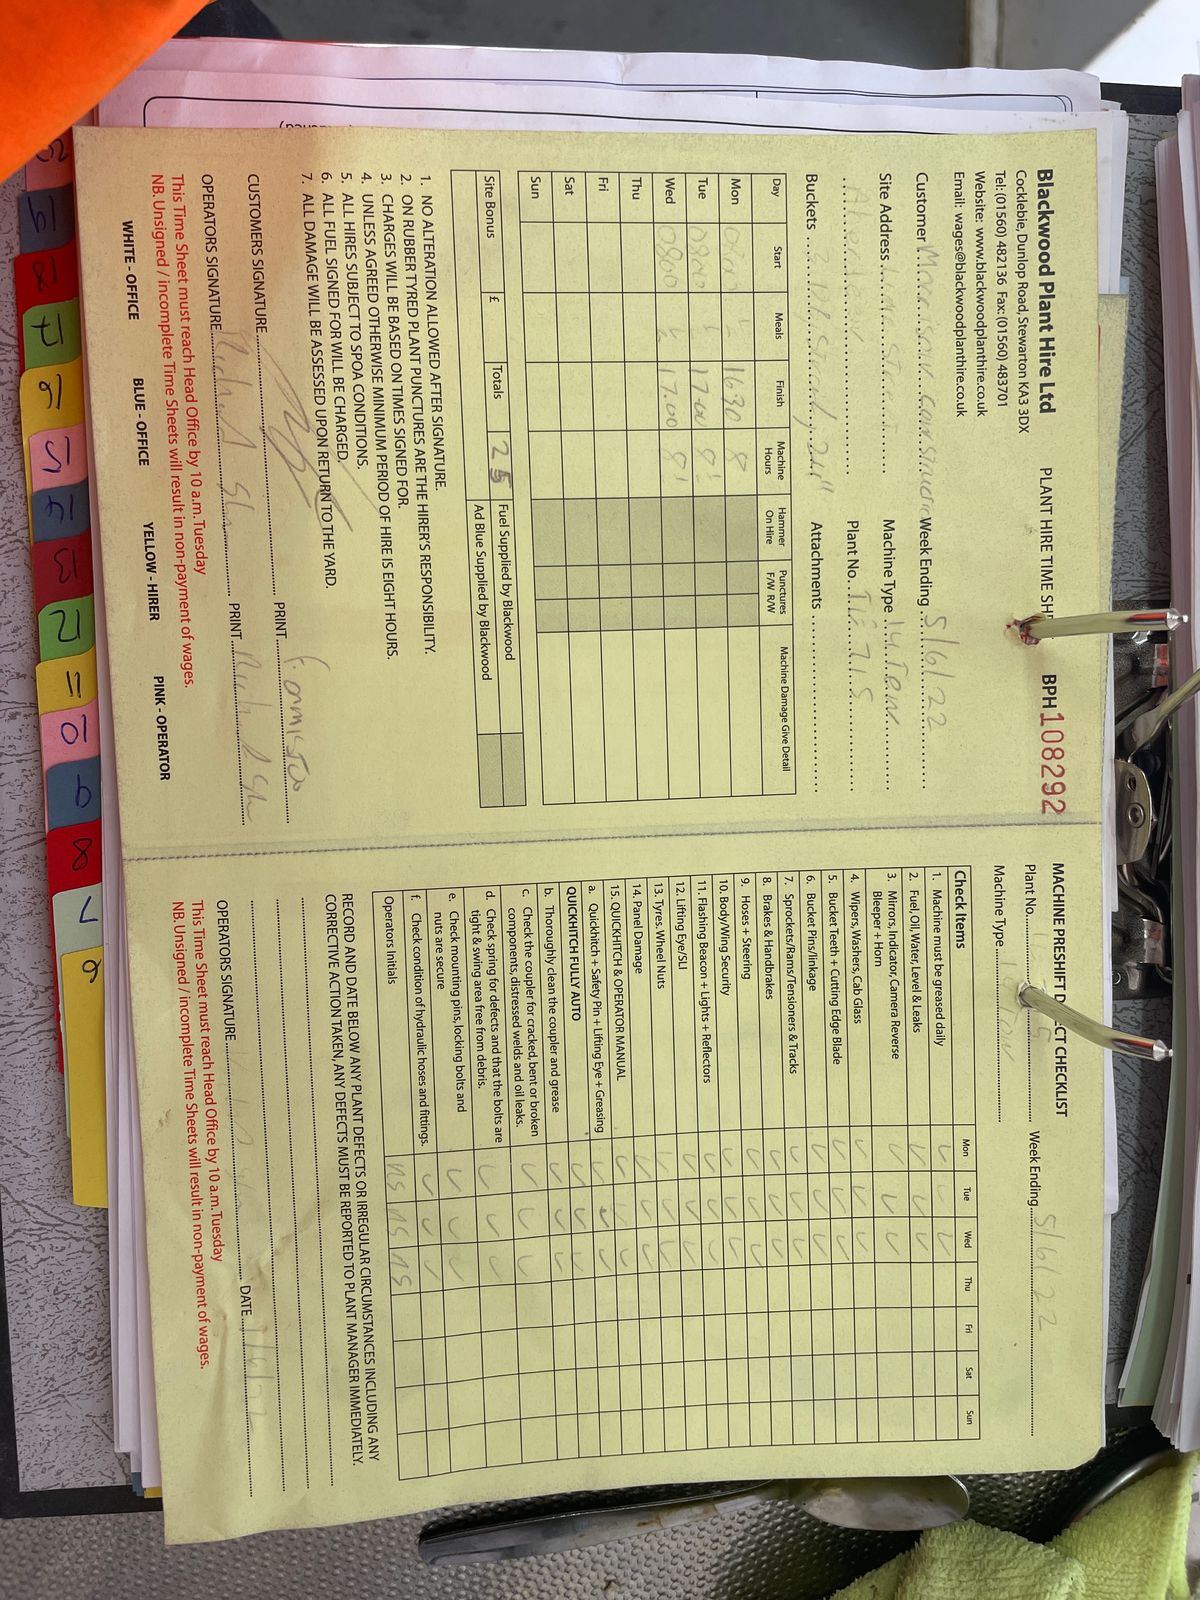 Blackwood Plant Hire Ltd
Cocklebie, Dunlop Road, Stewarton KA3 3DX
Tel: (01560) 482136 Fax: (01560) 483701
Website: www.blackwoodplanthire.co.uk
Email: wages@blackwoodplanthire.co.uk
PLANT HIRE TIME
BPH 108292
Customer Morrison Construction
Week Ending 5/6/22
Site Address
Street
Machine Type 14 Ton
Aberdeen
Plant No. 715
Buckets 24"
Attachments
Day Start Meals Finish Machine Hours Hammer On Hire Punctures F/W R/W Machine Damage Give Detail
Mon 0800 1630 8
Tue 0800 17.00 8
Wed 0800 17.00 8
Thu
Fri
Sat
Sun
Site Bonus £ Totals 25 Fuel Supplied by Blackwood
Ad Blue Supplied by Blackwood
1. NO ALTERATION ALLOWED AFTER SIGNATURE.
2. ON RUBBER TYRED PLANT PUNCTURES ARE THE HIRER'S RESPONSIBILITY.
3. CHARGES WILL BE BASED ON TIMES SIGNED FOR.
4. UNLESS AGREED OTHERWISE MINIMUM PERIOD OF HIRE IS EIGHT HOURS.
5. ALL HIRES SUBJECT TO SPOA CONDITIONS.
6. ALL FUEL SIGNED FOR WILL BE CHARGED.
7. ALL DAMAGE WILL BE ASSESSED UPON RETURN TO THE YARD.
CUSTOMERS SIGNATURE PRINT
OPERATORS SIGNATURE Richard PRINT Richard
This Time Sheet must reach Head Office by 10 a.m. Tuesday
NB. Unsigned / incomplete Time Sheets will result in non-payment of wages.
WHITE - OFFICE BLUE - OFFICE YELLOW - HIRER PINK - OPERATOR
MACHINE PRESHIFT CHECKLIST
Plant No. Week Ending 5/6/22
Machine Type 14 Ton
Check Items Mon Tue Wed Thu Fri Sat Sun
1. Machine must be greased daily
2. Fuel, Oil, Water, Level & Leaks
3. Mirrors, Indicator, Camera Reverse
Bleeper + Horn
4. Wipers, Washers, Cab Glass
5. Bucket Teeth + Cutting Edge Blade
6. Bucket Pins/linkage
7. Sprockets/Rams/Tensioners & Tracks
8. Brakes & Handbrakes
9. Hoses + Steering
10. Body/Wing Security
11. Flashing Beacon + Lights + Reflectors
12. Lifting Eye/SLI
13. Tyres. Wheel Nuts
14. Panel Damage
15. QUICKHITCH & OPERATOR MANUAL
a. Quickhitch + Safety Pin + Lifting Eye + Greasing
QUICKHITCH FULLY AUTO
b. Thoroughly clean the coupler and grease
c. Check the coupler for cracked, bent or broken
components, distressed welds and oil leaks.
d. Check spring for defects and that the bolts are
tight & swing area free from debris.
e. Check mounting pins, locking bolts and
nuts are secure
f. Check condition of hydraulic hoses and fittings.
Operators Initials ns ns ns
RECORD AND DATE BELOW ANY PLANT DEFECTS OR IRREGULAR CIRCUMSTANCES INCLUDING ANY
CORRECTIVE ACTION TAKEN, ANY DEFECTS MUST BE REPORTED TO PLANT MANAGER IMMEDIATELY.
OPERATORS SIGNATURE DATE
This Time Sheet must reach Head Office by 10 a.m. Tuesday
NB. Unsigned / incomplete Time Sheets will result in non-payment of wages.
19 18 17 16 15 14 13 12 11 10 9 8 7 6